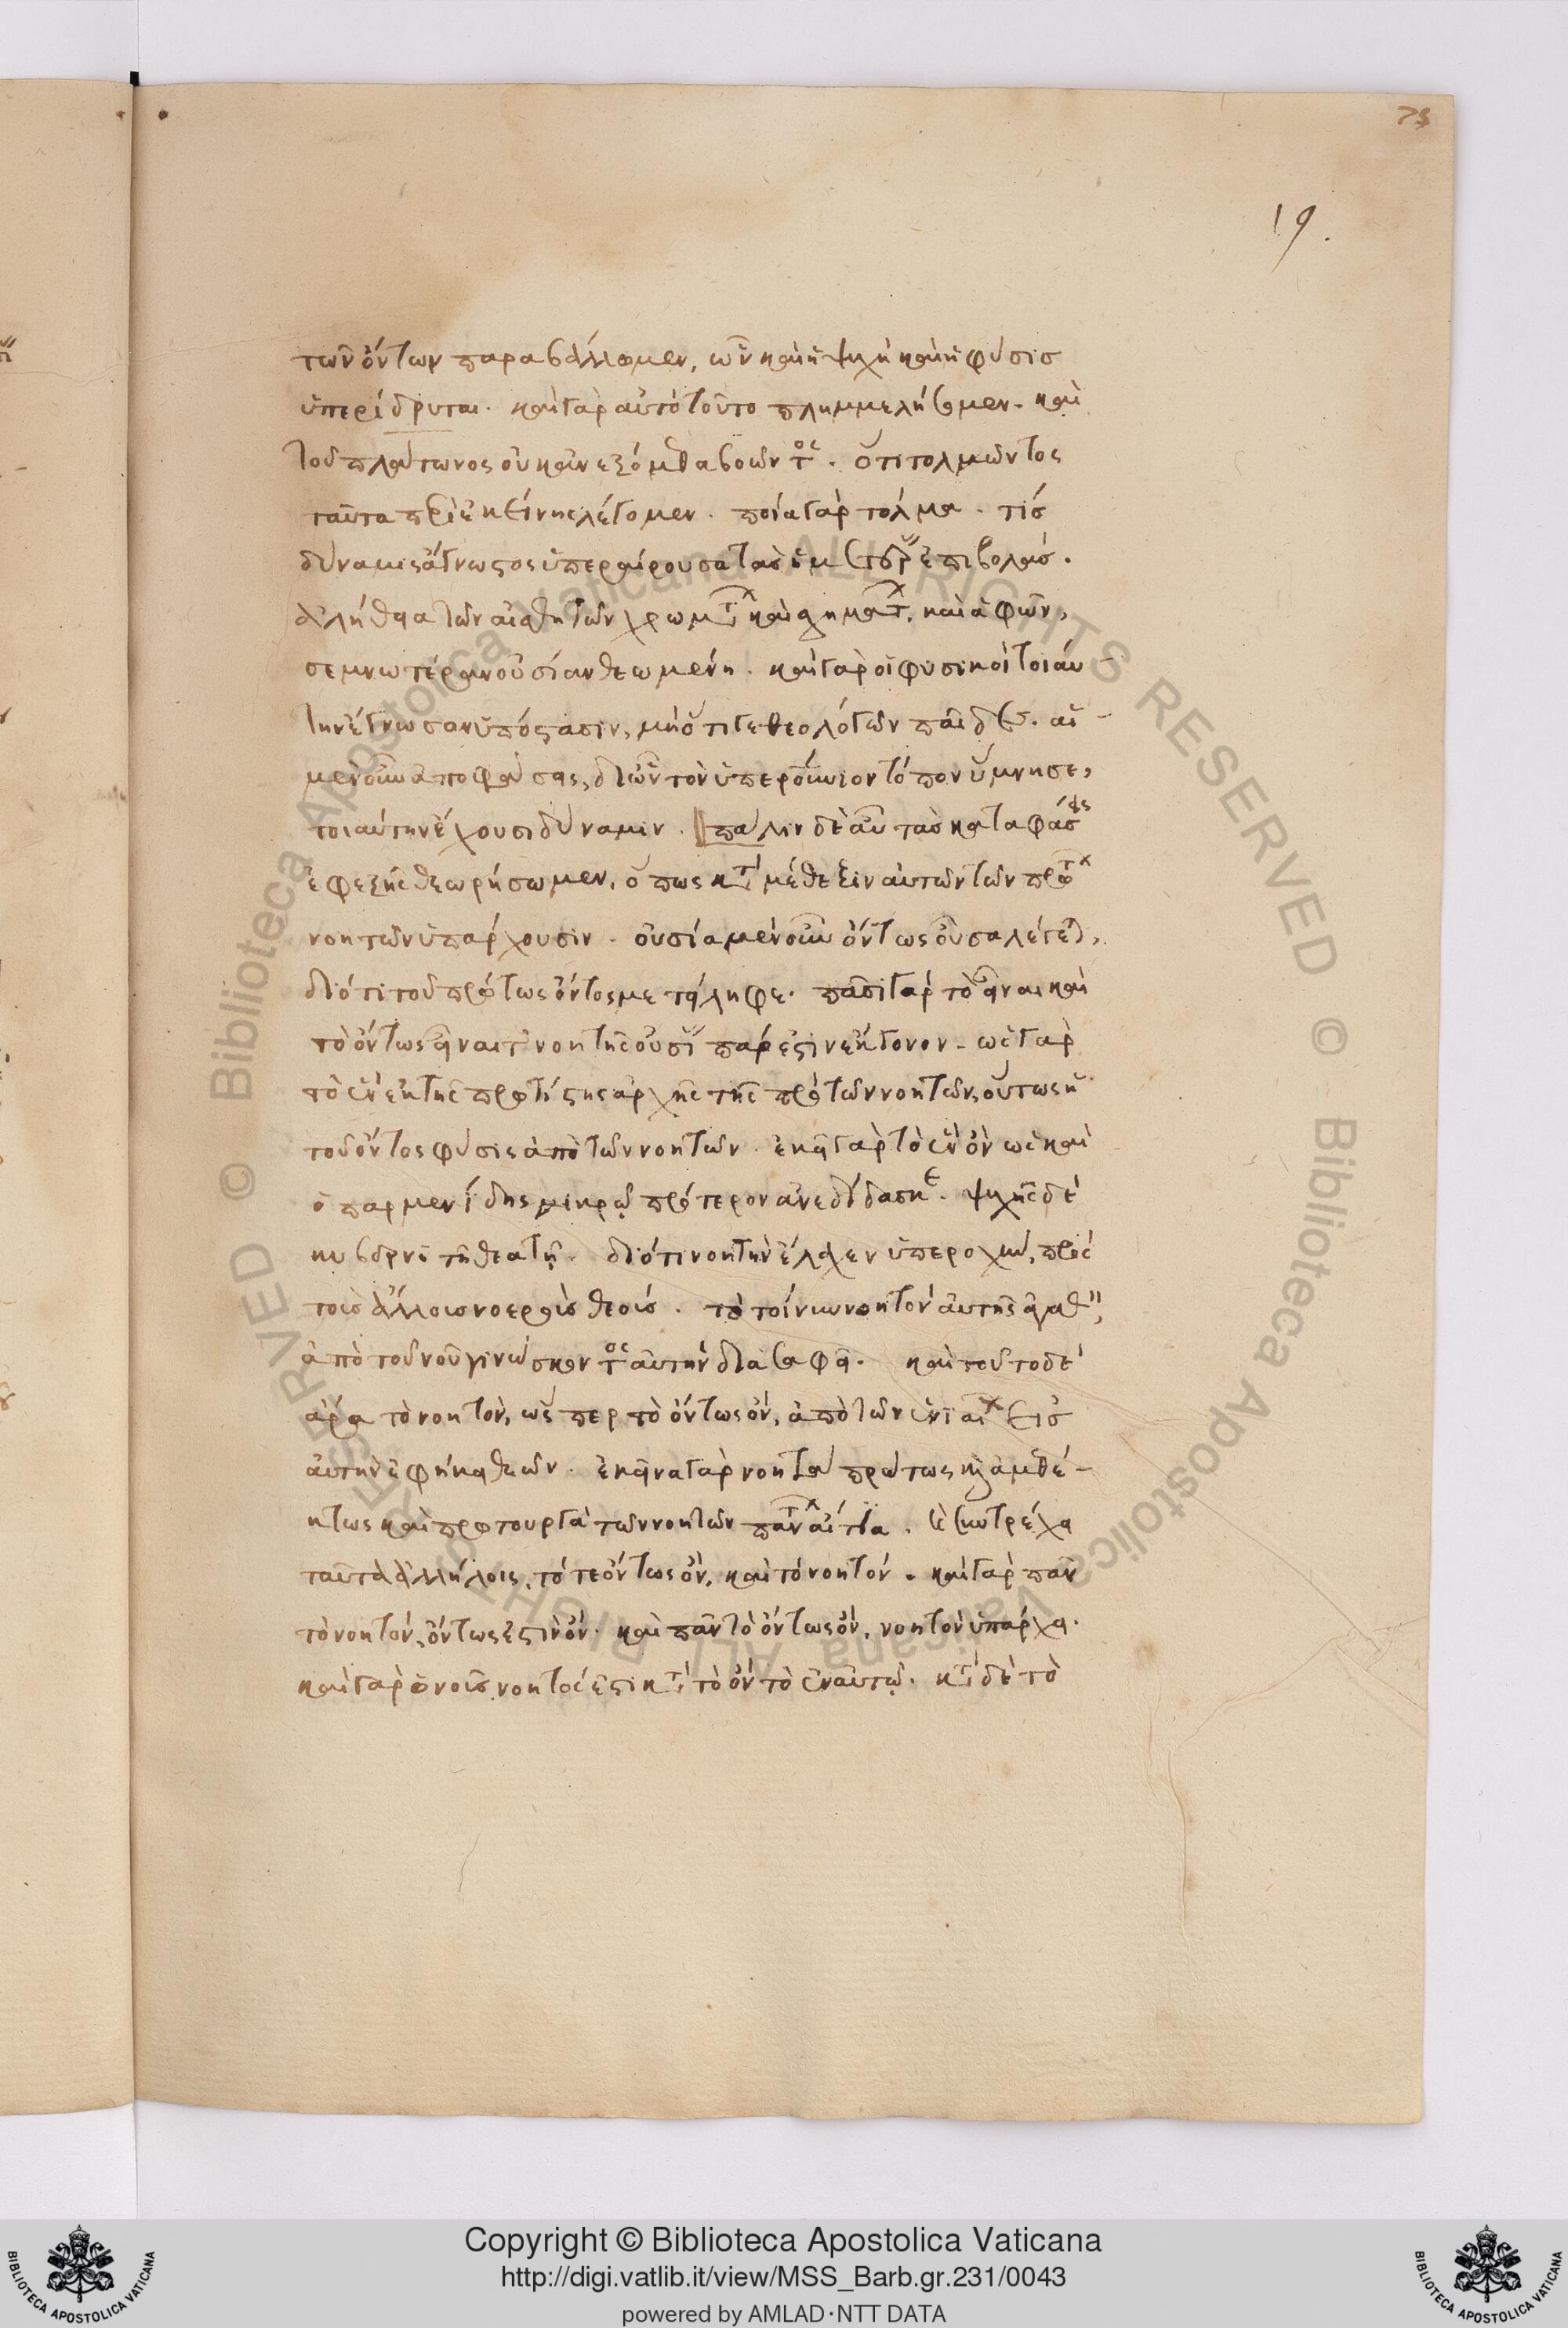 73
19.
τῶν ὄντων παραβάλλομεν, ὧν καὶ ἡ ψυχὴ καὶ ἡ φύσις
ὑπερίδρυται. καὶ γὰρ αὐτὸ τοῦτο πλημμελήσομεν. καὶ
τοῦ πλάτωνος οὐκ ἀνεξόμεθα βοῶντος. ὅτι τολμῶντος
ταῦτα περὶ ἐκείνης λέγομεν. ποία γὰρ τόλμα. τίς
δύναμις ἄγνωστος ὑπεραίρουσα τὰς ἡμετέρας ἐπιβολάς.
ἀλήθεια τῶν αἰσθητῶν χρωμάτων καὶ σχημάτων, καὶ ἁφῶν,
σεμνωτέραν οὐσίαν θεωμένη. καὶ γὰρ οἱ φυσικοὶ τοιαύ-
την ἔγνωσαν ὑπόστασιν, μὴ ὅτι γε θεολόγων παῖδες. αἱ
μὲν οὖν ἀποφάσεις, δι ὧν τὸν ὑπερουράνιον τόπον ὕμνησε,
τοιαύτην ἔχουσι δύναμιν. πάλιν δὲ αὖ τὰς καταφάσεις
ἐφεξῆς θεωρήσωμεν, ὅπως κατὰ μέθεξιν αὐτῶν τῶν πρώτων
νοητῶν ὑπάρχουσιν. οὐσία μὲν οὖν ὄντως οὖσα λέγεται,
διότι τοῦ πρώτως ὄντος μετείληφε. πᾶσι γὰρ τὸ εἶναι καὶ
τὸ ὄντως εἶναι τῆς νοητῆς οὐσίας πάρεστιν ἔκγονον. ὡς γὰρ
τὸ ἓν ἐκ τῆς πρωτίστης ἀρχῆς τῆς πρὸ τῶν νοητῶν, οὕτως ἡ
τοῦ ὄντος φύσις ἀπὸ τῶν νοητῶν. ἐκεῖ γὰρ τὸ ἓν ὂν ὡς καὶ
ὁ παρμενίδης μικρῷ πρότερον ἀνεδίδασκε. ψυχῆς δὲ
κυβερνήτῃ θεατῇ. διότι νοητὴν ἔλαχεν ὑπεροχὴν, πρὸς
τοῖς ἄλλοις νοεροῖς θεοῖς. τὸ τοίνυν νοητὸν αὐτῆς ἀγαθὸν,
ἀπὸ τοῦ νοῦ γινώσκοντος αὐτὴν διασαφεῖ. καὶ τοῦτο δὲ
ἄρα τὸ νοητὸν, ὥσπερ τὸ ὄντως ὂν, ἀπὸ τῶν ἑνιαίων εἰς
αὐτὴν ἐφήκει θεῶν. ἐκεῖνα γὰρ νοητὰ πρώτως καὶ ἀμεθέ-
κτως καὶ πρωτουργὰ τῶν νοητῶν πάντων αἴτια. καὶ συντρέχει
ταῦτα ἀλλήλοις, τό τε ὄντως ὂν, καὶ τὸ νοητόν. καὶ γὰρ πᾶν
τὸ νοητὸν, ὄντως ἐστὶν ὄν. καὶ πᾶν τὸ ὄντως ὂν, νοητὸν ὑπάρχει.
καὶ γὰρ ὁ νοῦς νοητός ἐστι κατὰ τὸ ὂν τὸ ἐν αὐτῷ. κατὰ δὲ τὸ
© Biblioteca Apostolica Vaticana ALL RIGHTS RESERVED © Biblioteca Apostolica Vaticana ALL RIGHTS RESERVED
BIBLIOTECA APOSTOLICA VATICANA
Copyright © Biblioteca Apostolica Vaticana
http://digi.vatlib.it/view/MSS_Barb.gr.231/0043
powered by AMLAD·NTT DATA
BIBLIOTECA APOSTOLICA VATICANA